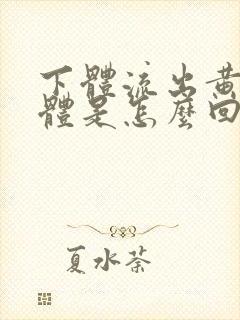 下體流出黃
體是怎麼回
夏水荼